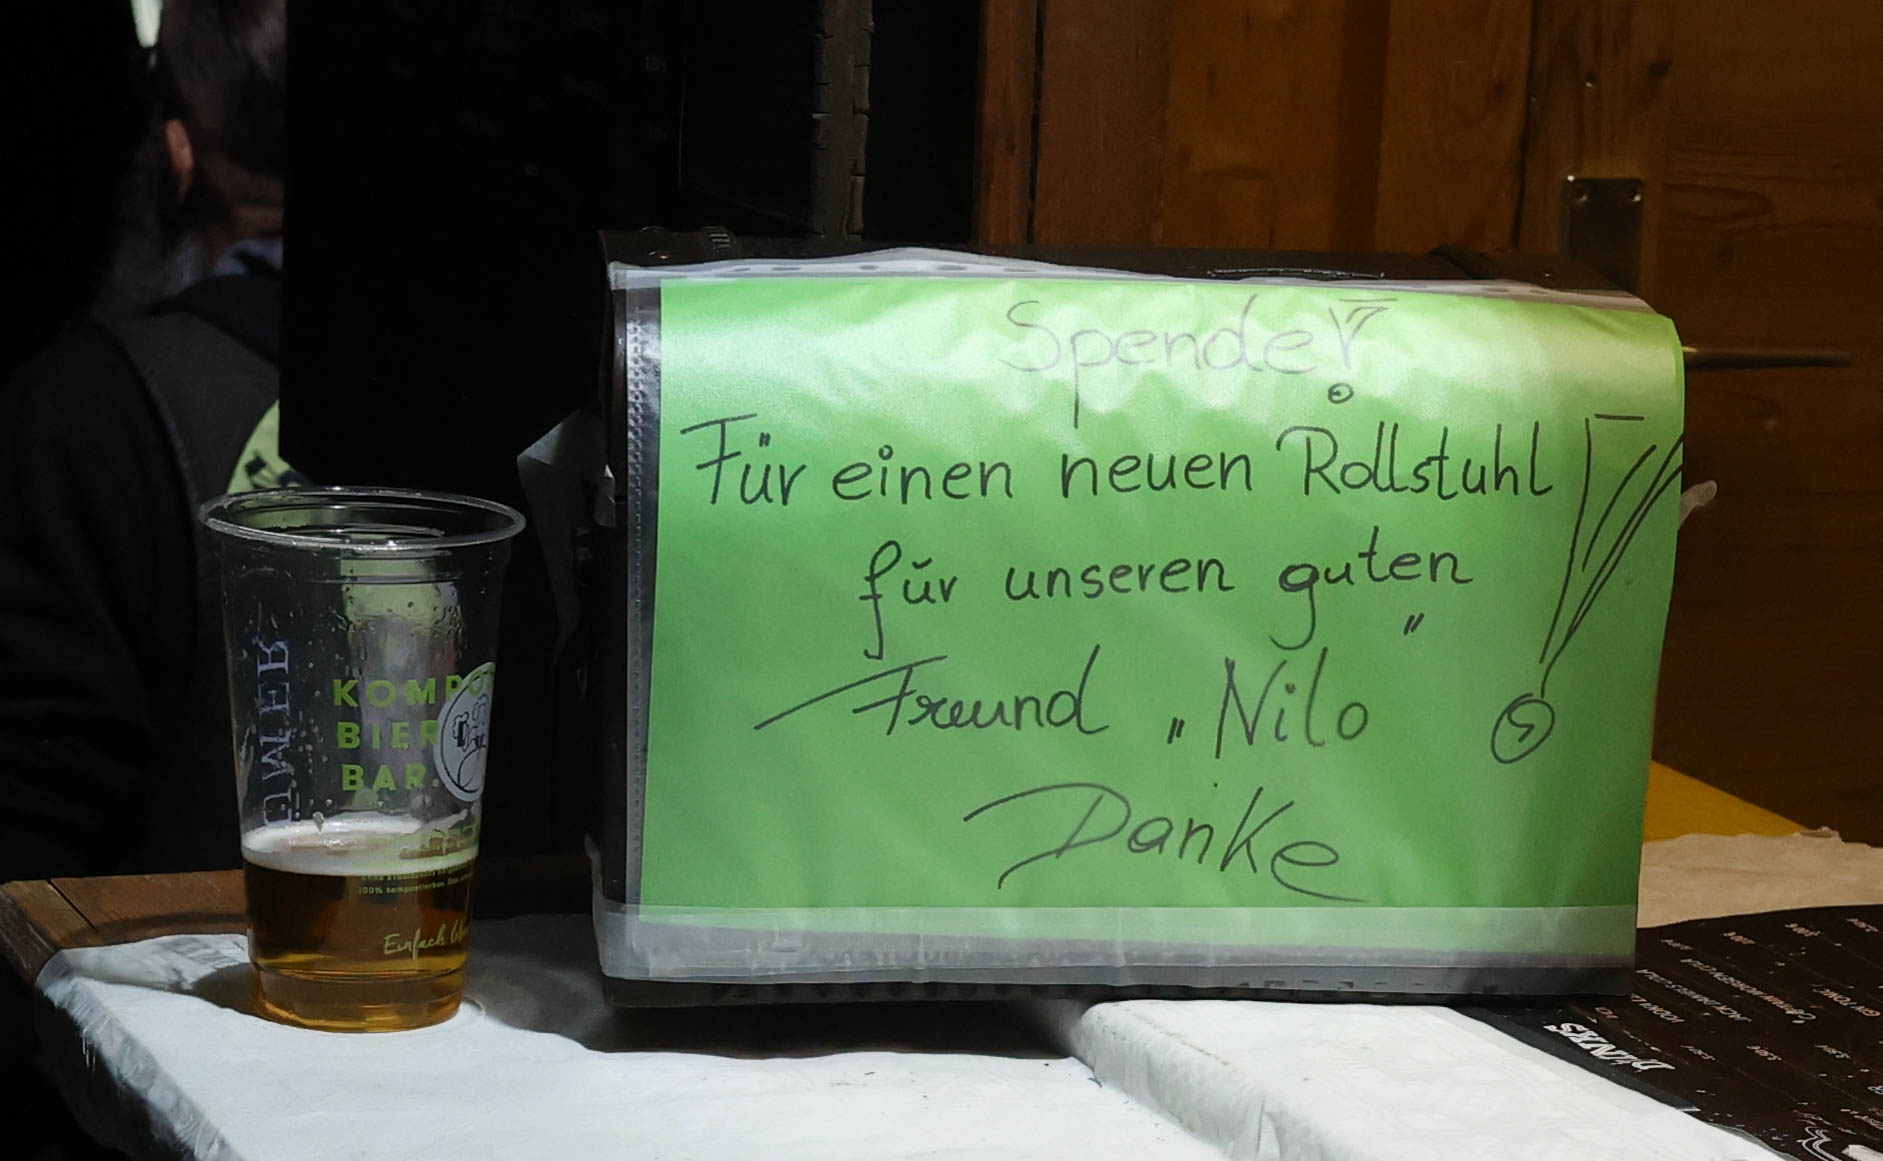 Spende!
Für einen neuen Rollstuhl!
für unseren guten
Freund „Nilo"
Danke
KOMPO
BIER
BAR.
100% kompostierbar
Einfach
DRINKS